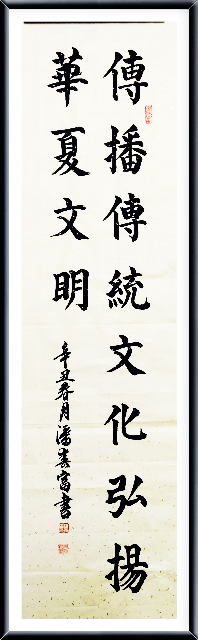 傳播傳統文化弘揚
華夏文明
辛丑春月潘春富書